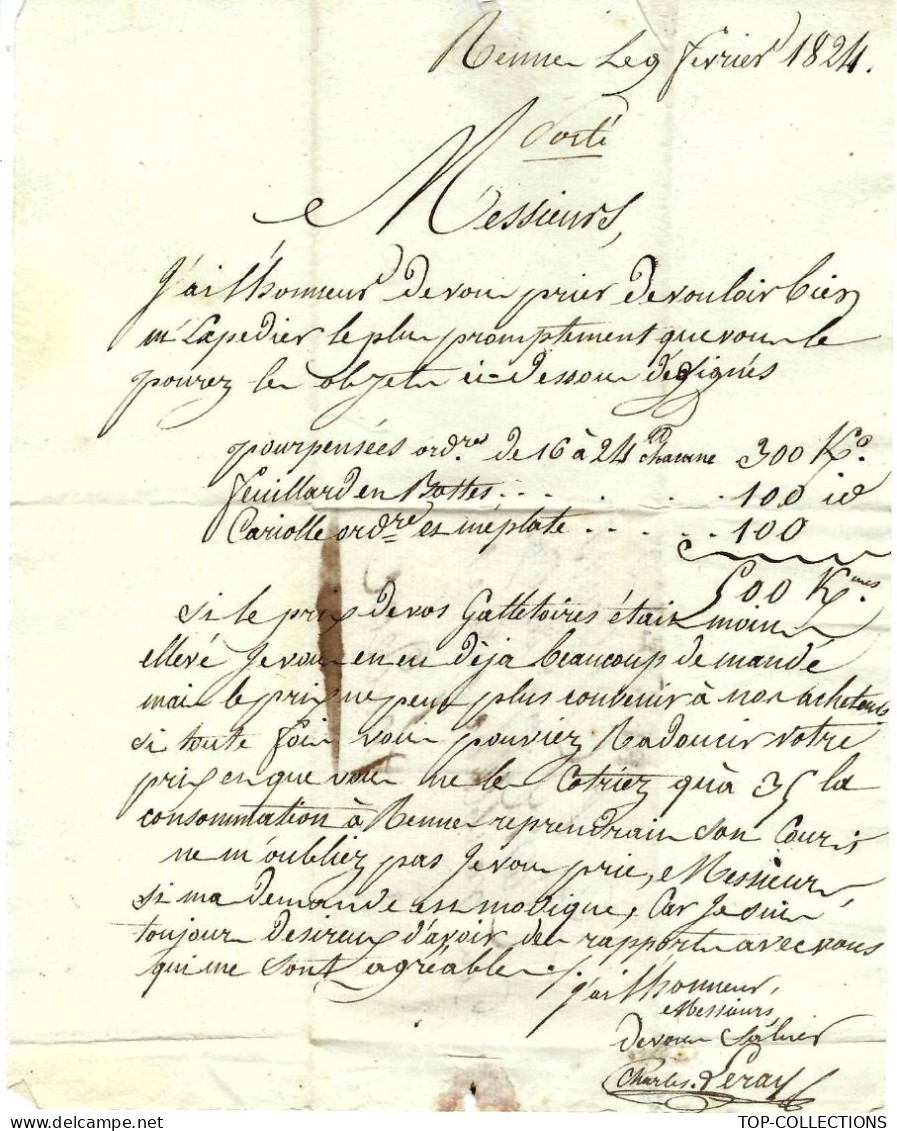 Renne Le 9 fevrier 1824.
Porté
Messieurs,
J'ai l'honneur de vous prier de vouloir bien
m'Expedier le plus promptement que vous le
pourez les objets ci-dessous désignés
ordres de 16 à 24 300 Ko
feuillard en Bottes . . . . . . 100 id
Cariolle ordre et méplate . . . . 100
500 Kmes
Si le prix de vos Galletoires étais moins
ellevé Je vous en eu dèja beaucoup demandé
mais le prix ne peu plus convenir à nos acheteurs
si toute fois vous pouviez Radoucir votre
prix en que vous ne le Cotriez qu'à 35 la
consommation à Renne reprendrais son Cours
ne m'oubliez pas Je vous prie, Messieurs
si ma demande est modique, Car Je suis
toujour desireux d'avoir des rapports avec vous
qui me sont agréables ./.
J'ai l'honneur,
Messieurs,
de vous Saluer
Charles Leray
TOP-COLLECTIONS